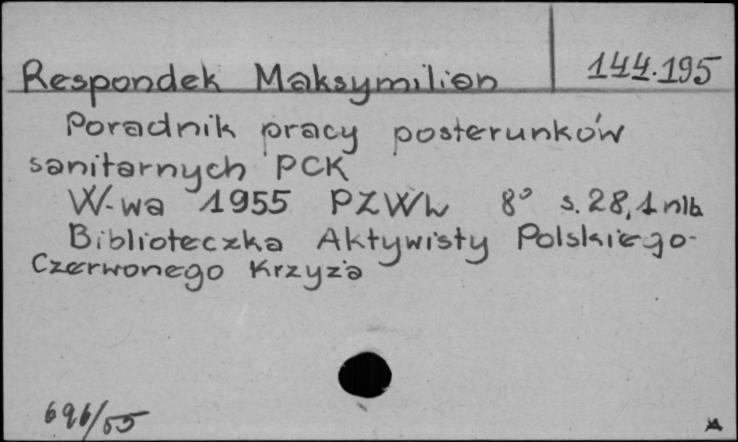 Respondek Maksymilian 144.195
Poradnik pracy posterunków
sanitarnych PCK
W-wa 1955 PZWL 8° s. 28, 1 nlb
Biblioteczka Aktywisty Polskiego
Czerwonego Krzyża
696/55